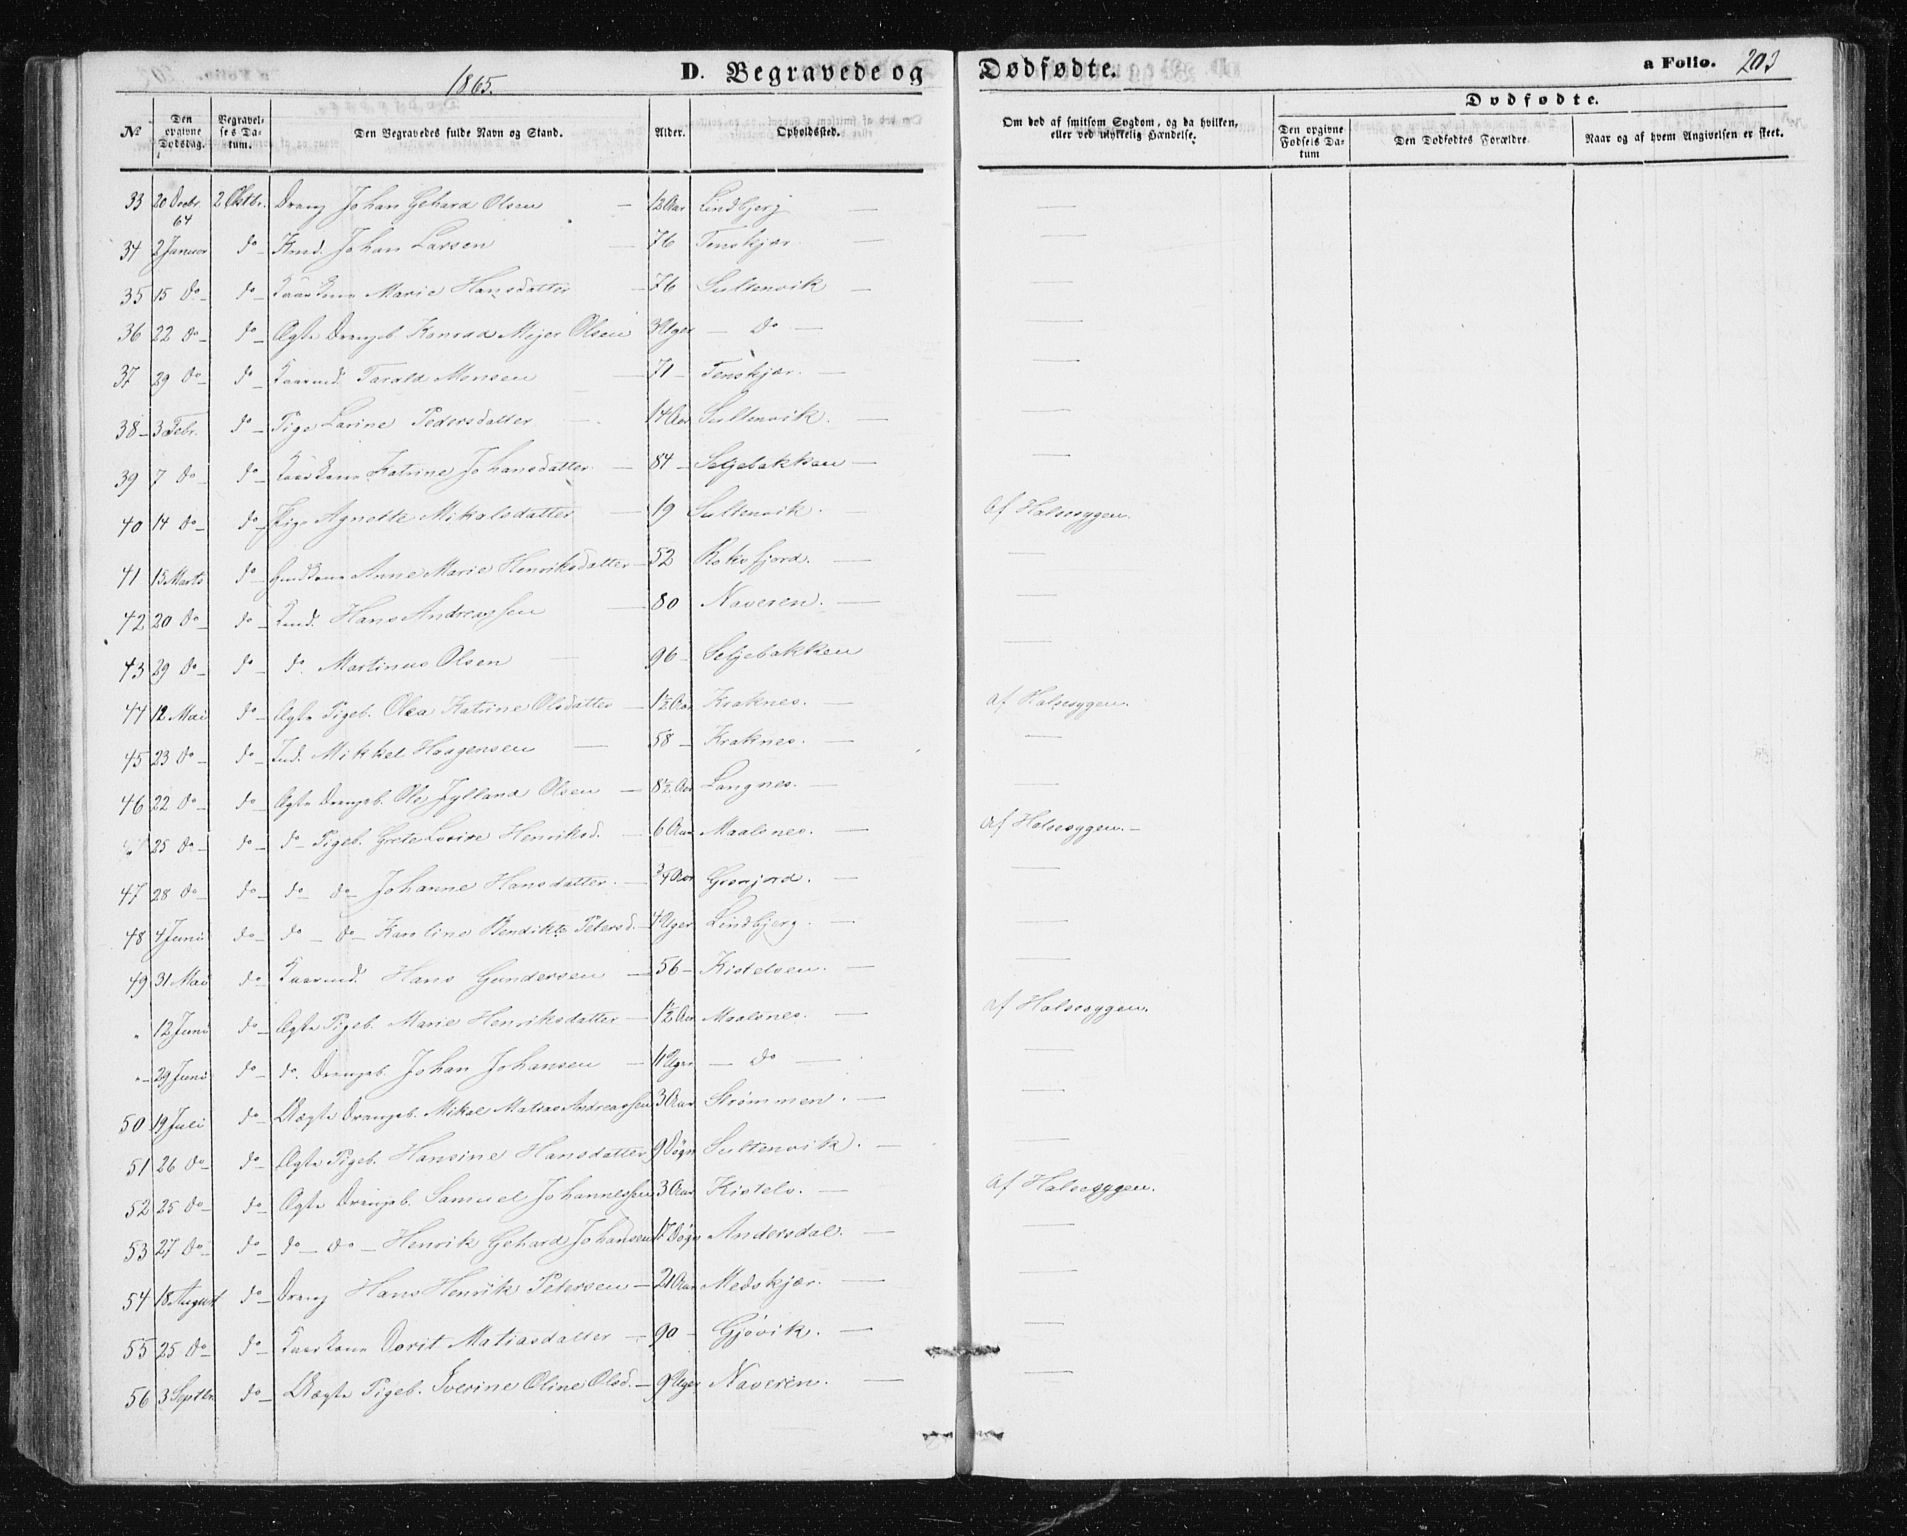 1865.
D. Begravede og Dødfødte.
a Folio. 203
No
Den opgivne Dødsdag.
Begravelses Datum.
Den Begravedes fulde Navn og Stand.
Alder.
Opholdssted.
Om død af smitsom Sygdom, og da hvilken, eller ved ulykkelig Hændelse.
Dødfødte.
Den opgivne Fødsels Datum
Den Dødfødtes Forældre.
Naar og af hvem Angivelsen er skeet.
33 20 Decbr 64 2 Octbr. Dreng Johan Gehard Olsen — 12 Aar Lindbjerg —
34 2 Januar do Johan Larsen — 76 Tenskjær. —
35 15 do do Marie Hansdatter — 76 Sultenvik —
36 22 do do Ægte Drengeb. Konrad Mejer Olsen 3 Uger — do —
37 29 do do Taarald Monsen — 71 Tenskjær. —
38 3 Febr. do Pige Larine Pedersdatter — 14 Aar Sultenvik. —
39 7 do do Katrine Johansdatter — 84 Seljebakken —
40 14 do do Pige Agnette Mikalsdatter — 19 Sultenvik. — Af Halssygen.
41 15 Marts do Anne Marie Henriksdatter — 52 fjord. —
42 20 do do Hans Andreassen — 80 Naveren. —
43 29 do do do. Martinus Olsen — 96 Seljebakken
44 12 Mai do Ægte Pigeb. Olea Katrine Olsdatter — 1½ Aar Kraknes. — af Halssygen.
45 23 do do Ind. Mikkel Haagensen — 58 Kraknes. —
46 22 do do Ægte Drengeb. Ole Jylland Olsen — 8½ Aar Langnes. —
25 do do do Pigeb. Grete Henriksd. — 6 Aar Maalsnes. — af Halssygen. —
47 28 do do do do Johanne Hansdatter. — ¾ Aar —
48 4 Juni do do — do — Karoline Bendikte Petersd. — 4 Uger Lindbjerg. —
49 31 Mai do Hans Gundersen — 56 — Kistelsen. —
" 12 Juni do Ægte Pigeb. Marie Henriksdatter — 1½ Aar Maalsnes. — af Halssygen.
" 29 Juni do do. Drengeb. Johan Johansen — 11 Uger — do —
50 19 Juli do Uægte Drengeb. Mikal Matias Andreassen 3 Aar Strømmen. —
51 26 do do Ægte Pigeb. Hansine Hansdatter 9 Døgn Sultenvik. —
52 25 do do Ægte Drengeb. Samuel Johannessen 3 Aar Kistels. — Af Halssygen.
53 27 do do do — do — Henrik Gehard Johansen 17 Døgn Andersdal. —
54 18 August do Dreng Hans Henrik Petersen — 21 Aar Medskjær. —
55 25 do do Dorit Matiasdatter — 90 — Gjøvik. —
56 3 Septbr. do Uægte Pigeb. Sverine Oline Olsd. — 9 Uger Naveren. —